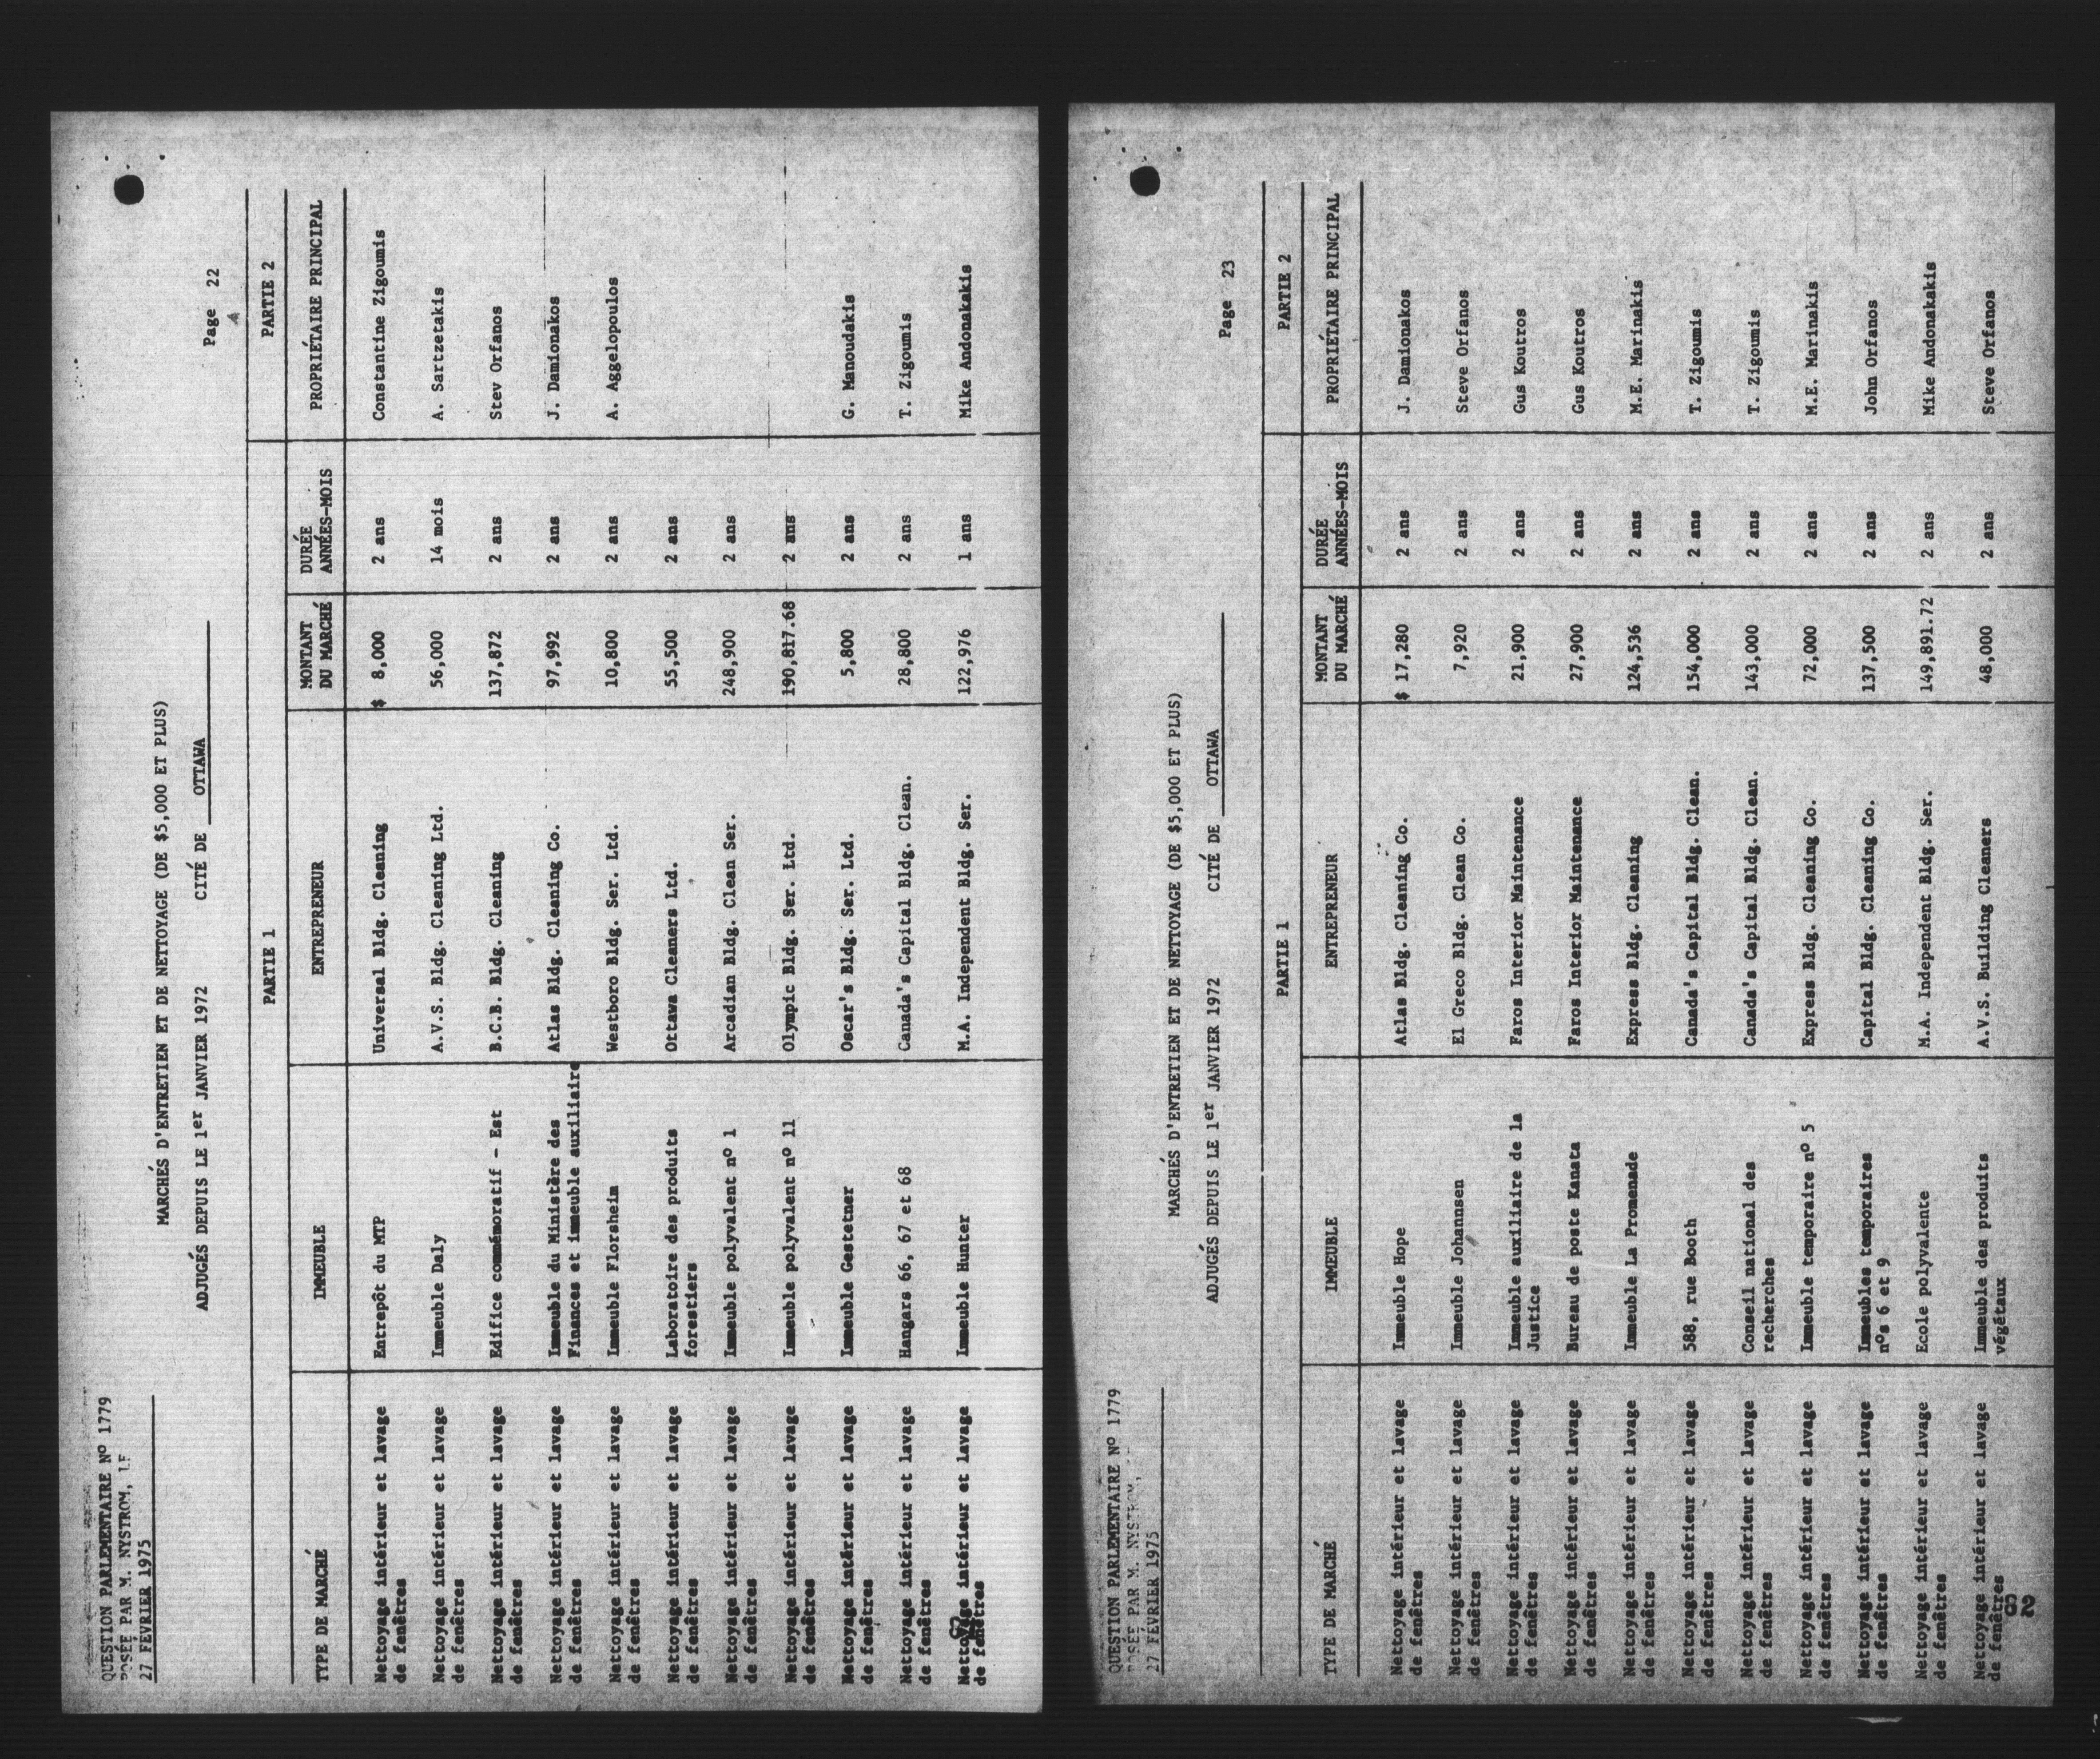 QUESTION PARLEMENTAIRE Nº 1779
POSÉE PAR M. NYSTROM,
27 FÉVRIER 1975
MARCHÉS D'ENTRETIEN ET DE NETTOYAGE (DE $5,000 ET PLUS)
Page 22
ADJUGÉS DEPUIS LE 1er JANVIER 1972 CITÉ DE OTTAWA
PARTIE 1 PARTIE 2
TYPE DE MARCHÉ IMMEUBLE ENTREPRENEUR MONTANT DU MARCHÉ DURÉE ANNÉES-MOIS PROPRIÉTAIRE PRINCIPAL
Nettoyage intérieur et lavage Entrepôt du MTP Universal Bldg. Cleaning $ 8,000 2 ans Constantine Zigoumis
de fenêtres
Nettoyage intérieur et lavage Immeuble Daly A.V.S. Bldg. Cleaning Ltd. 56,000 14 mois A. Sartzetakis
de fenêtres
Nettoyage intérieur et lavage Edifice commémoratif - Est B.C.B. Bldg. Cleaning 137,872 2 ans Stev Orfanos
de fenêtres
Nettoyage intérieur et lavage Immeuble du Ministère des Atlas Bldg. Cleaning Co. 97,992 2 ans J. Damionakos
de fenêtres Finances et immeuble auxiliaire
Nettoyage intérieur et lavage Immeuble Florsheim Westboro Bldg. Ser. Ltd. 10,800 2 ans A. Aggelopoulos
de fenêtres
Nettoyage intérieur et lavage Laboratoire des produits Ottawa Cleaners Ltd. 55,500 2 ans
de fenêtres forestiers
Nettoyage intérieur et lavage Immeuble polyvalent nº 1 Arcadian Bldg. Clean Ser. 248,900 2 ans
de fenêtres
Nettoyage intérieur et lavage Immeuble polyvalent nº 11 Olympic Bldg. Ser. Ltd. 190,817.68 2 ans
de fenêtres
Nettoyage intérieur et lavage Immeuble Gestetner Oscar's Bldg. Ser. Ltd. 5,800 2 ans G. Manoudakis
de fenêtres
Nettoyage intérieur et lavage Hangars 66, 67 et 68 Canada's Capital Bldg. Clean. 28,800 2 ans T. Zigoumis
de fenêtres
Nettoyage intérieur et lavage Immeuble Hunter M.A. Independent Bldg. Ser. 122,976 1 ans Mike Andonakakis
de fenêtres
QUESTION PARLEMENTAIRE Nº 1779
POSÉE PAR M. NYSTROM,
27 FÉVRIER 1975
MARCHÉS D'ENTRETIEN ET DE NETTOYAGE (DE $5,000 ET PLUS)
Page 23
ADJUGÉS DEPUIS LE 1er JANVIER 1972 CITÉ DE OTTAWA
PARTIE 1 PARTIE 2
TYPE DE MARCHÉ IMMEUBLE ENTREPRENEUR MONTANT DU MARCHÉ DURÉE ANNÉES-MOIS PROPRIÉTAIRE PRINCIPAL
Nettoyage intérieur et lavage Immeuble Hope Atlas Bldg. Cleaning Co. $ 17,280 2 ans J. Damionakos
de fenêtres
Nettoyage intérieur et lavage Immeuble Johannsen El Greco Bldg. Clean Co. 7,920 2 ans Steve Orfanos
de fenêtres
Nettoyage intérieur et lavage Immeuble auxiliaire de la Faros Interior Maintenance 21,900 2 ans Gus Koutros
de fenêtres Justice
Nettoyage intérieur et lavage Bureau de poste Kanata Faros Interior Maintenance 27,900 2 ans Gus Koutros
de fenêtres
Nettoyage intérieur et lavage Immeuble La Promenade Express Bldg. Cleaning 124,536 2 ans M.E. Marinakis
de fenêtres
Nettoyage intérieur et lavage 588, rue Booth Canada's Capital Bldg. Clean. 154,000 2 ans T. Zigoumis
de fenêtres
Nettoyage intérieur et lavage Conseil national des Canada's Capital Bldg. Clean. 143,000 2 ans T. Zigoumis
de fenêtres recherches
Nettoyage intérieur et lavage Immeuble temporaire nº 5 Express Bldg. Cleaning Co. 72,000 2 ans M.E. Marinakis
de fenêtres
Nettoyage intérieur et lavage Immeubles temporaires Capital Bldg. Cleaning Co. 137,500 2 ans John Orfanos
de fenêtres nºs 6 et 9
Nettoyage intérieur et lavage Ecole polyvalente M.A. Independent Bldg. Ser. 149,891.72 2 ans Mike Andonakakis
de fenêtres
Nettoyage intérieur et lavage Immeuble des produits A.V.S. Building Cleaners 48,000 2 ans Steve Orfanos
de fenêtres végétaux